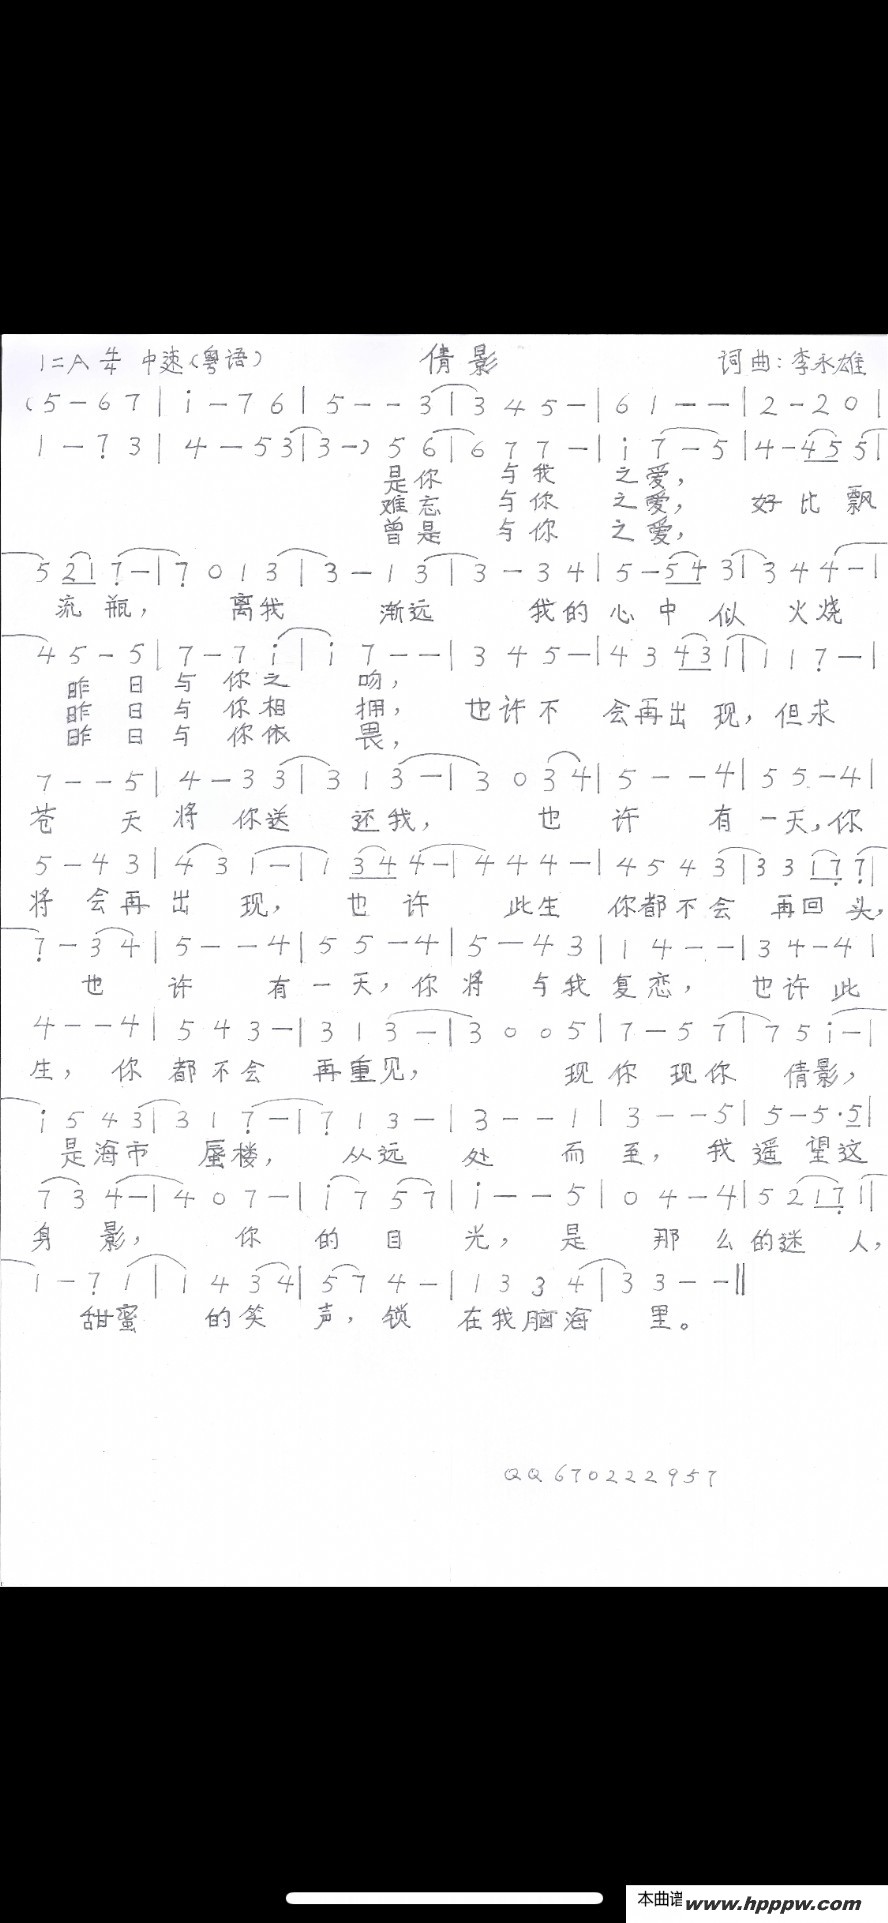 1=A 4/4 中速(粤语) 倩影 词曲:李永雄
(5-67|i-76|5--3|345-|61--|2-20|
1-73|4-53|3-)56|677-|i7-5|4-455|
是你 与我 之爱,
难忘 与你 之爱, 好比飘
曾是 与你 之爱,
5217-|7013|3-13|3-34|5-543|344-|
流瓶, 离我 渐远 我的心中似火烧
45-5|7-7i|i7--|345-|43431|117-|
昨日与你之 吻,
昨日与你相 拥, 也许不 会再出现, 但求
昨日与你依 畏,
7--5|4-33|313-|3034|5--4|55-4|
苍 天将你送 还我, 也许 有一天,你
5-43|431-|1344-|444-|4543|33177|
将会再出 现, 也许 此生 你都不会 再回头,
7-34|5--4|55-4|5-43|14--|34-4|
也许 有一天,你将 与我复恋, 也许此
4--4|543-|313-|3005|7-57|75i-|
生, 你都不会 再重见, 现你现你 倩影,
i543|317-|713-|3--1|3--5|5-5·5|
是海市 蜃楼, 从远 处 而至, 我遥望这
734-|407-|i757|i--5|04-4|52171|
身影, 你的目光, 是 那么的迷人,
1-71|1434|574-|1334|33--‖
甜蜜 的笑声,锁 在我脑海 里。
QQ670222957
本曲谱
www.hpppw.com